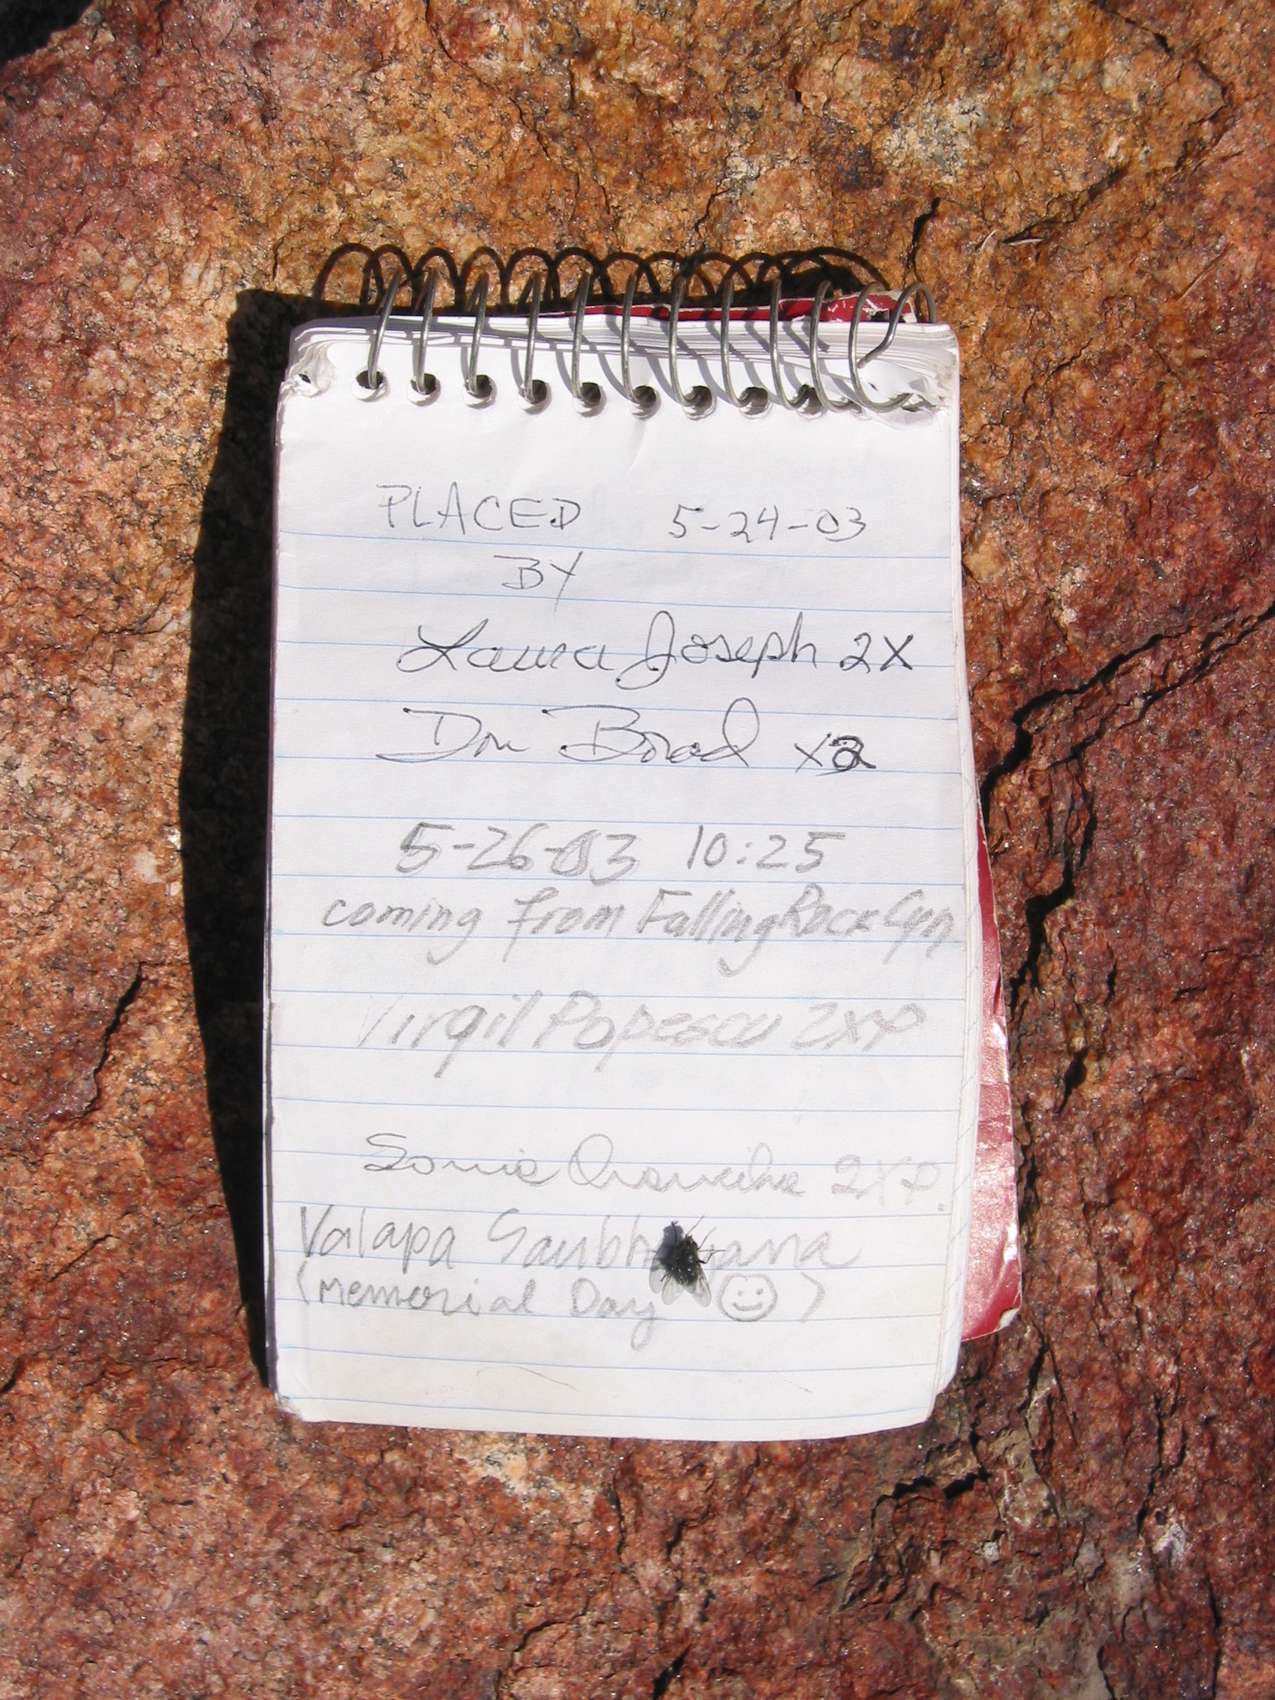 PLACED 5-24-03
BY
Laura Joseph 2X
Don Brad x2
5-26-03 10:25
coming from Falling Rock Cyn
Virgil Popescu 2xP
Sonia 2XP.
Valapa
(Memorial Day ☺)